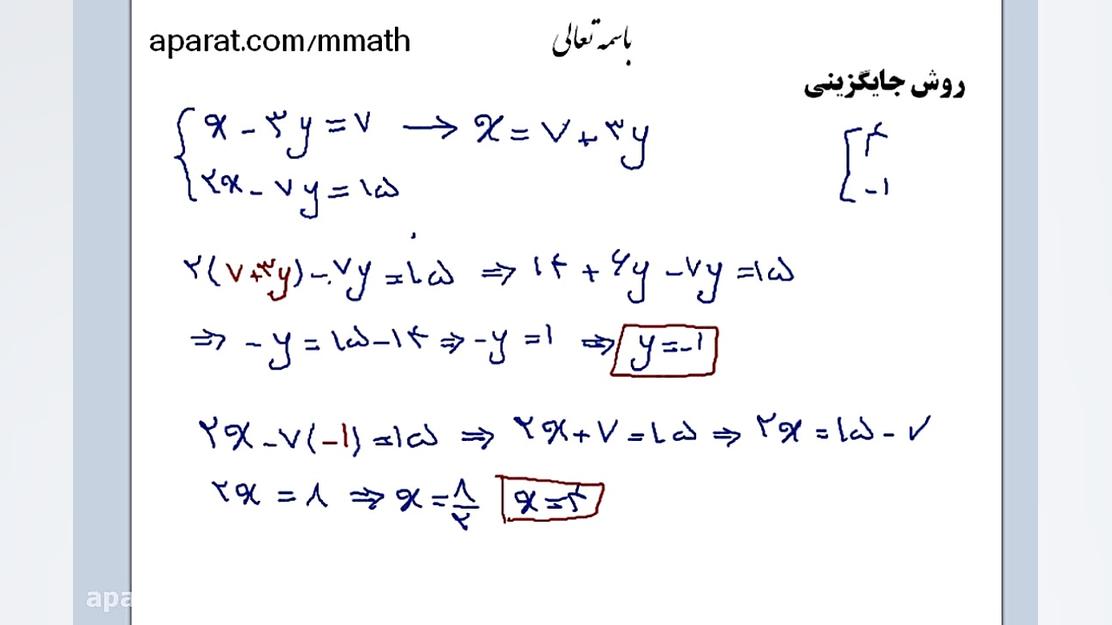 aparat.com/mmath
باسمه تعالی
روش جایگزینی
x - ۳y = ۷ → x = ۷ + ۳y
۲x - ۷y = ۱۵
[۴
-۱
۲(۷+۳y) - ۷y = ۱۵ ⇒ ۱۴ + ۶y - ۷y = ۱۵
⇒ -y = ۱۵ - ۱۴ ⇒ -y = ۱ ⇒ y = -۱
۲x - ۷(-۱) = ۱۵ ⇒ ۲x + ۷ = ۱۵ ⇒ ۲x = ۱۵ - ۷
۲x = ۸ ⇒ x = ۸/۲ x = ۴
apa